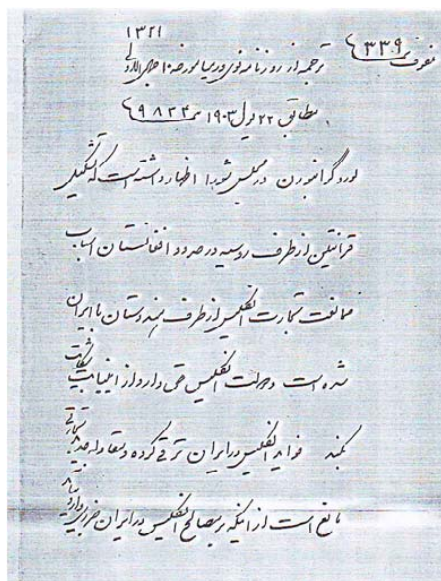 ۱۳۲۱
متفرقه ۳۳۹
ترجمه از روزنامه نوی ورمیا مورخه ۱۰
مطابق ۲۲ اپریل ۱۹۰۳ ۹۸۲۴
لورد کرانبورن در مجلس شورا اظهار داشته است که تشکیل
قرانتین از طرف روسیه در حدود افغانستان اسباب
ممانعت تجارت انگلیس از طرف هندوستان با ایران
شده است دولت انگلیس حق دارد از اینبابت شکایت
بکند فواید انگلیس در ایران ترقی کرده و تجارتی
مانع است از اینکه بر مصالح انگلیس در ایران ضرری وارد بیاید